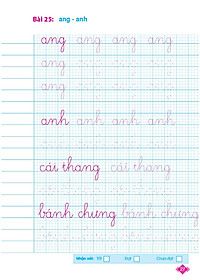 Bài 25: ang - anh
ang ang ang ang
ang ang ang ang
anh anh anh anh
cái thang cái thang
bánh chưng bánh chưng
Nhận xét: Tốt Đạt Chưa đạt